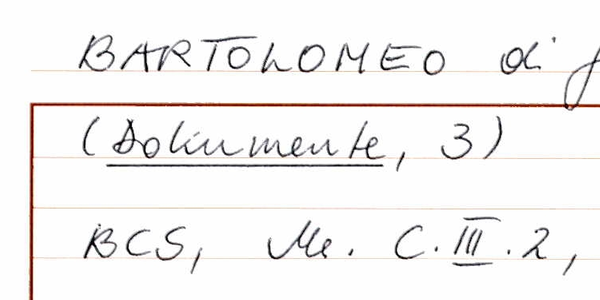 BARTOLOMEO di
(Dokumente, 3)
BCS, Ms. C.III.2,